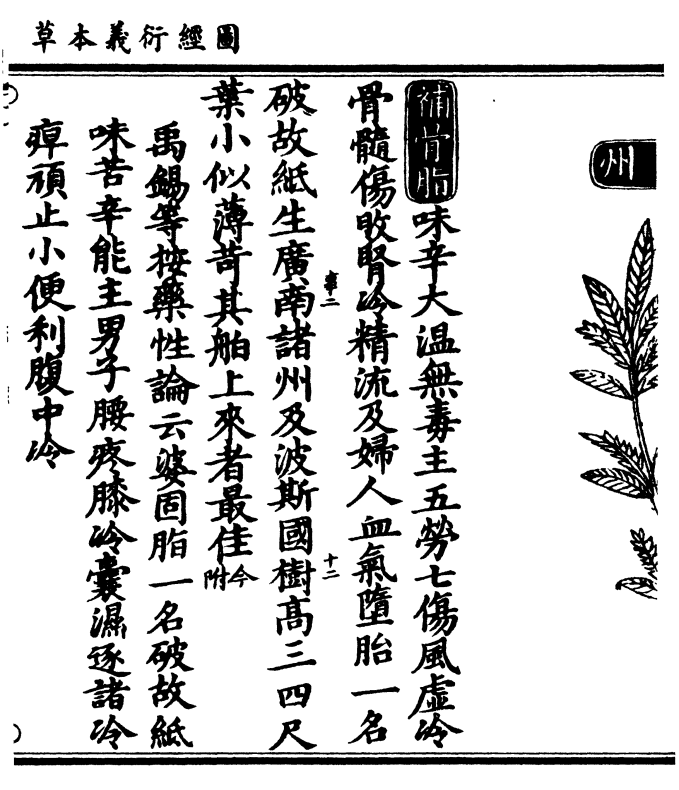 圖經衍義本草
州
補骨脂味辛大温無毒主五勞七傷風虛冷
骨髓傷敗腎冷精流及婦人血氣墮胎一名
破故紙生廣南諸州及波斯國樹高三四尺
葉小似薄苛其舶上來者最佳今附
禹錫等按藥性論云婆固脂一名破故紙
味苦辛能主男子腰疼膝冷囊濕逐諸冷
痹頑止小便利腹中冷
十二